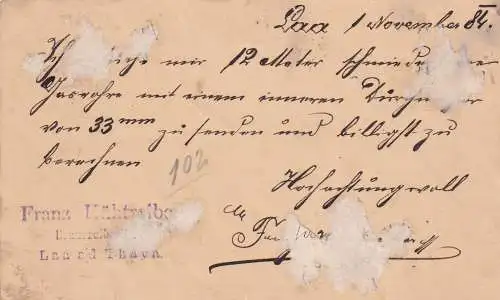 Laa 1 November 84.
Ich mir 12 Meter
Gasrohre mit einem inneren
von 33mm zu senden und billigst zu
berechnen
102
Hochachtungsvoll
Franz
Laa a/d Thaya.